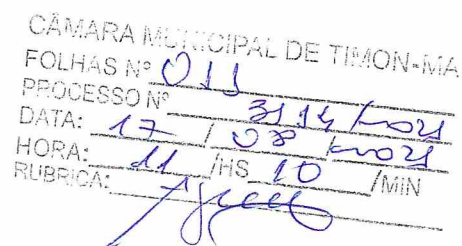 CÂMARA MUNICIPAL DE TIMON-MA
FOLHAS Nº 011
PROCESSO Nº 3114/2021
DATA: 17 / 08 /2021
HORA: 11 /HS 10 /MIN
RUBRICA: